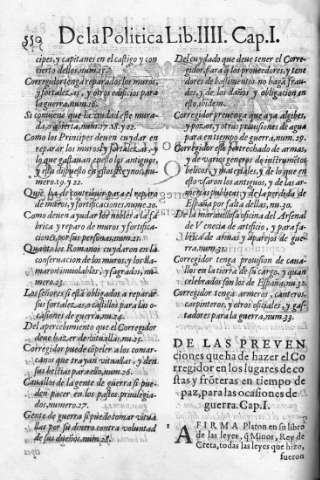 550 De la Politica Lib. IIII. Cap. I.
cipes, y capitanes en el castigo y con
cierto dellos,
Corregidor tenga reparados los muros,
y fortalezas, y otros edificios para
la guerra, num. 16.
Si conviene que la ciudad este mura-
da, o abierta, num. 17. 18. y 22.
Como los Principes deven cuydar en
reparar los muros y fortalezas, y
lo que gastavan en esto los antiguos,
y esta dispuesto en estos Reynos, nu-
mero. 19. y 22.
Quiẽ ha de contribuir para el reparo
de muros, y fortificaciones, nume. 20.
Como deven ayudar los nobles a la fa
brica y reparo de muros y fortifica-
ciones, por sus personas, num. 21.
Quanto los Romanos cuydaron en la
conservacion de los muros, y los lla-
maron inviolables, y sagrados, nu-
mero. 23.
Los señores si estã obligados a reparar
sus fortalezas, a caudillos para las o-
casiones de guerra, num. 24.
Del apercebimiento que el Corregidor
deve hazer de vituallas, nu. 25.
Corregidor puede cõpeler a los comar-
canos que traygan vituallas, y den
sus bestias para ello, num. 26.
Cavallos de la gente de guerra si pue-
den pacer en los pastos privilegia-
dos, numero. 27.
Gente de guerra si puede tomar vitua
llas por su dinero contra voluntad
de sus dueños. num. 28.
Del cuydado que deve tener el Corre-
gidor, para q̃ los proveedores, y tene
dores de bastimentos no hagã frau-
des, y de los daños y obligacion en
esto, ibidem.
Corregidor prevenga que aya algibes,
y pozos, y otras provisiones de agua
para en tiempo de guerra, num. 29.
Corregidor estè pertrechado de armas,
y de varios generos de instrumẽtos
belicos, y materiales, y de lo que en
esto usaron los antiguos, y de las ar-
merias publicas, y de la perdida de
España por falta dellas, nu. 30.
De la maravillosa oficina del Arsenal
de Venecia de artificio, y para fa-
bricas de armas y aparatos de gue-
rra. num. 31.
Corregidor tenga provision de cava-
llos en la tierra de su cargo, y quan
celebrados son los de España, nu. 32.
Corregidor tenga armeros, canteros,
carpinteros, y otros oficiales, y gas-
tadores para la guerra, num. 33.
DE LAS PREVEN
ciones que ha de hazer el Co
rregidor en los lugares de co
stas y frõteras en tiempo de
paz, para las ocasiones de
guerra. Cap. I.
1 AFIRMA Platon en su libro
de las leyes, q̃ Minos, Rey de
Creta, todas las leyes que hizo,
fueron